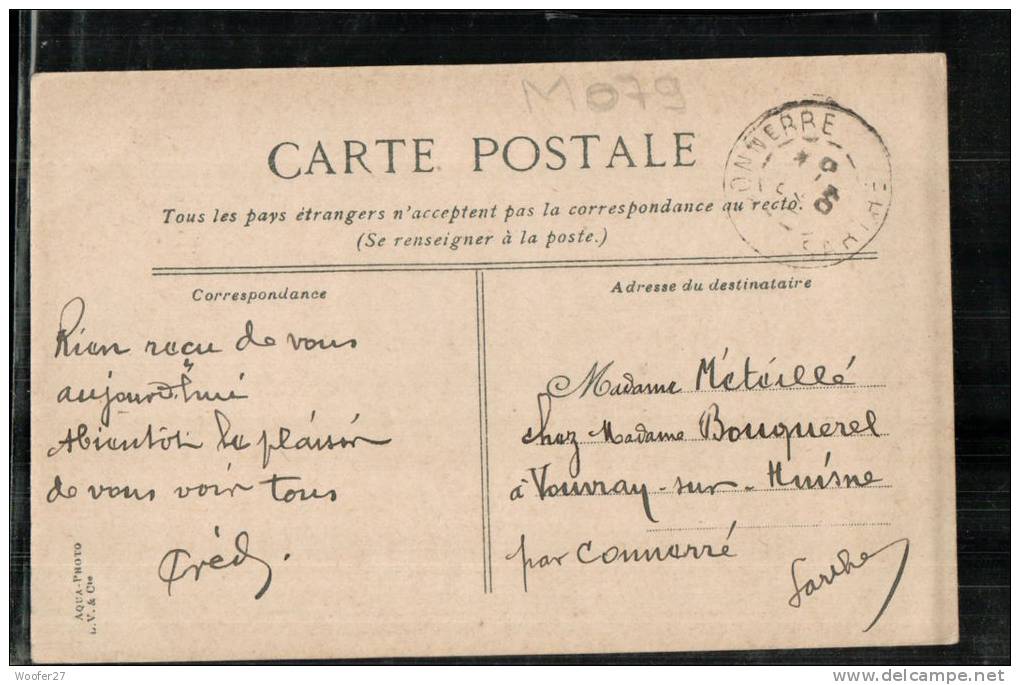 M079
CARTE POSTALE
Tous les pays étrangers n'acceptent pas la correspondance au recto.
(Se renseigner à la poste.)
CONNERRE
SARTHE
Correspondance
Rien reçu de vous
aujourd'hui
Abientôt le plaisir
de vous voir tous
Adresse du destinataire
Madame Méteillé
chez Madame Bouquerel
à Vouvray-sur-Huisne
par Connerré
Sarthe
AQUA-PHOTO
L.V. & Cie
Woofer27
delcampe.net